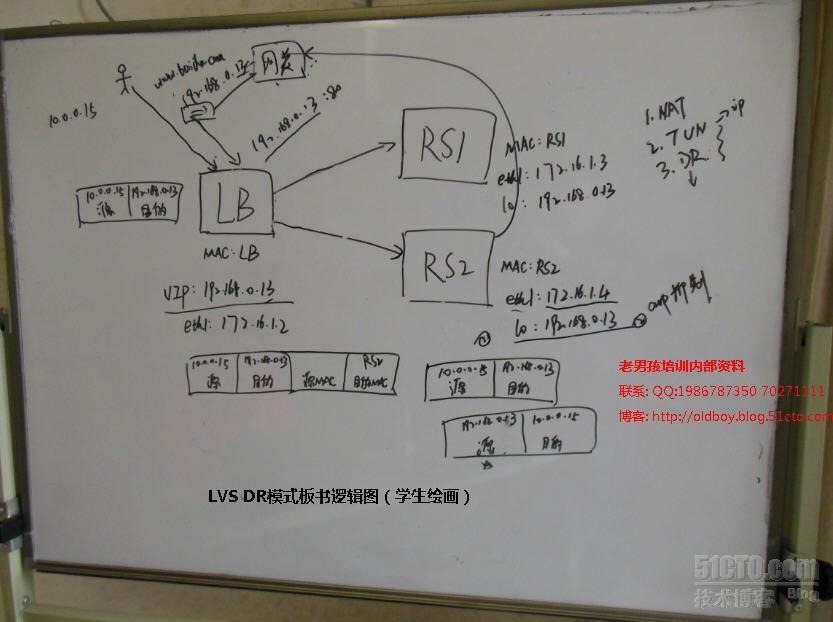 网关
www.baidu.com
192.168.0.13
10.0.0.15
192.168.0.13 :80
RS1
MAC: RS1
eth1: 172.16.1.3
lo: 192.168.0.13
1. NAT
2. TUN → ip
3. DR
10.0.0.15 192.168.0.13
源 目的
LB
MAC: LB
VIP: 192.168.0.13
eth1: 172.16.1.2
RS2
MAC: RS2
eth1: 172.16.1.4
lo: 192.168.0.13
arp抑制
10.0.0.15 192.168.0.13 RS2
源 目的 源MAC 目的MAC
10.0.0.15 192.168.0.13
源 目的
192.168.0.13 10.0.0.15
源 目的
老男孩培训内部资料
联系: QQ:1986787350 70271111
博客: http://oldboy.blog.51cto.com
LVS DR模式板书逻辑图（学生绘画）
51CTO.com
技术博客 Blog